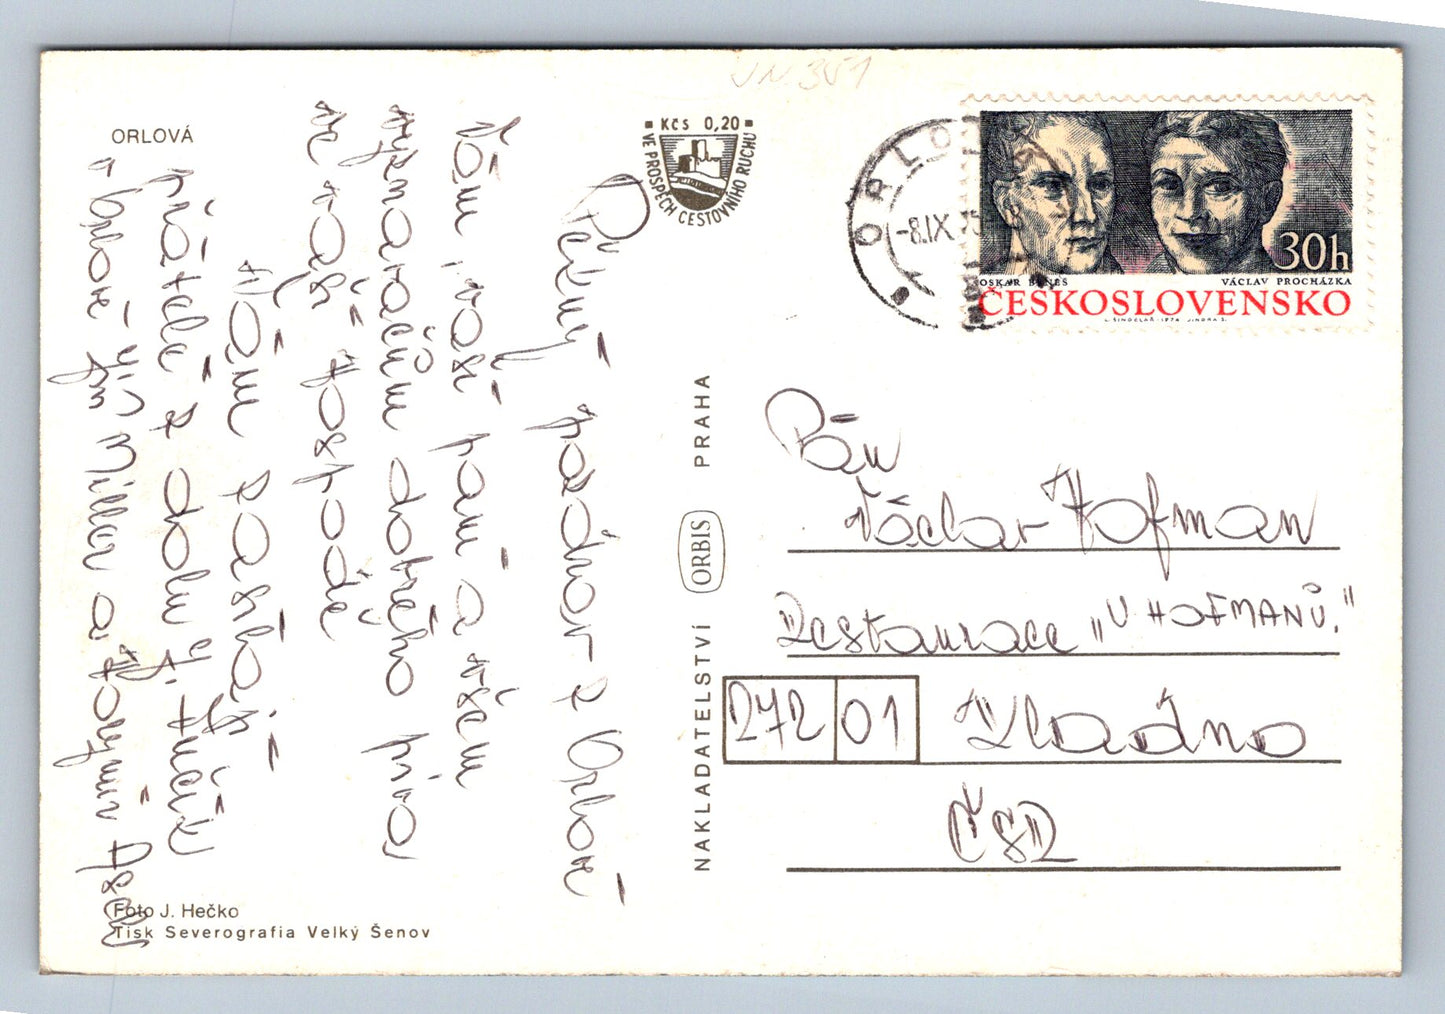 ORLOVÁ
Kčs 0,20
VE PROSPĚCH CESTOVNÍHO RUCHU
Pěkný pozdrav z Orlové
Vám i vaší paní a všem
štamgastům dobrého piva
ve vaší hospodě
Vám zasílají
přátelé z dolu
v Orlové Miller a
Foto J. Hečko
Tisk Severografia Velký Šenov
NAKLADATELSTVÍ ORBIS PRAHA
ORLOVÁ
-8.IX.75-
30h
OSKAR BENEŠ VÁCLAV PROCHÁZKA
ČESKOSLOVENSKO
L. ŠINDELÁŘ · 1974 JINDRA S.
Pán
Václav Hofman
Restaurace „U HOFMANŮ."
272 01 Kladno
ČSR